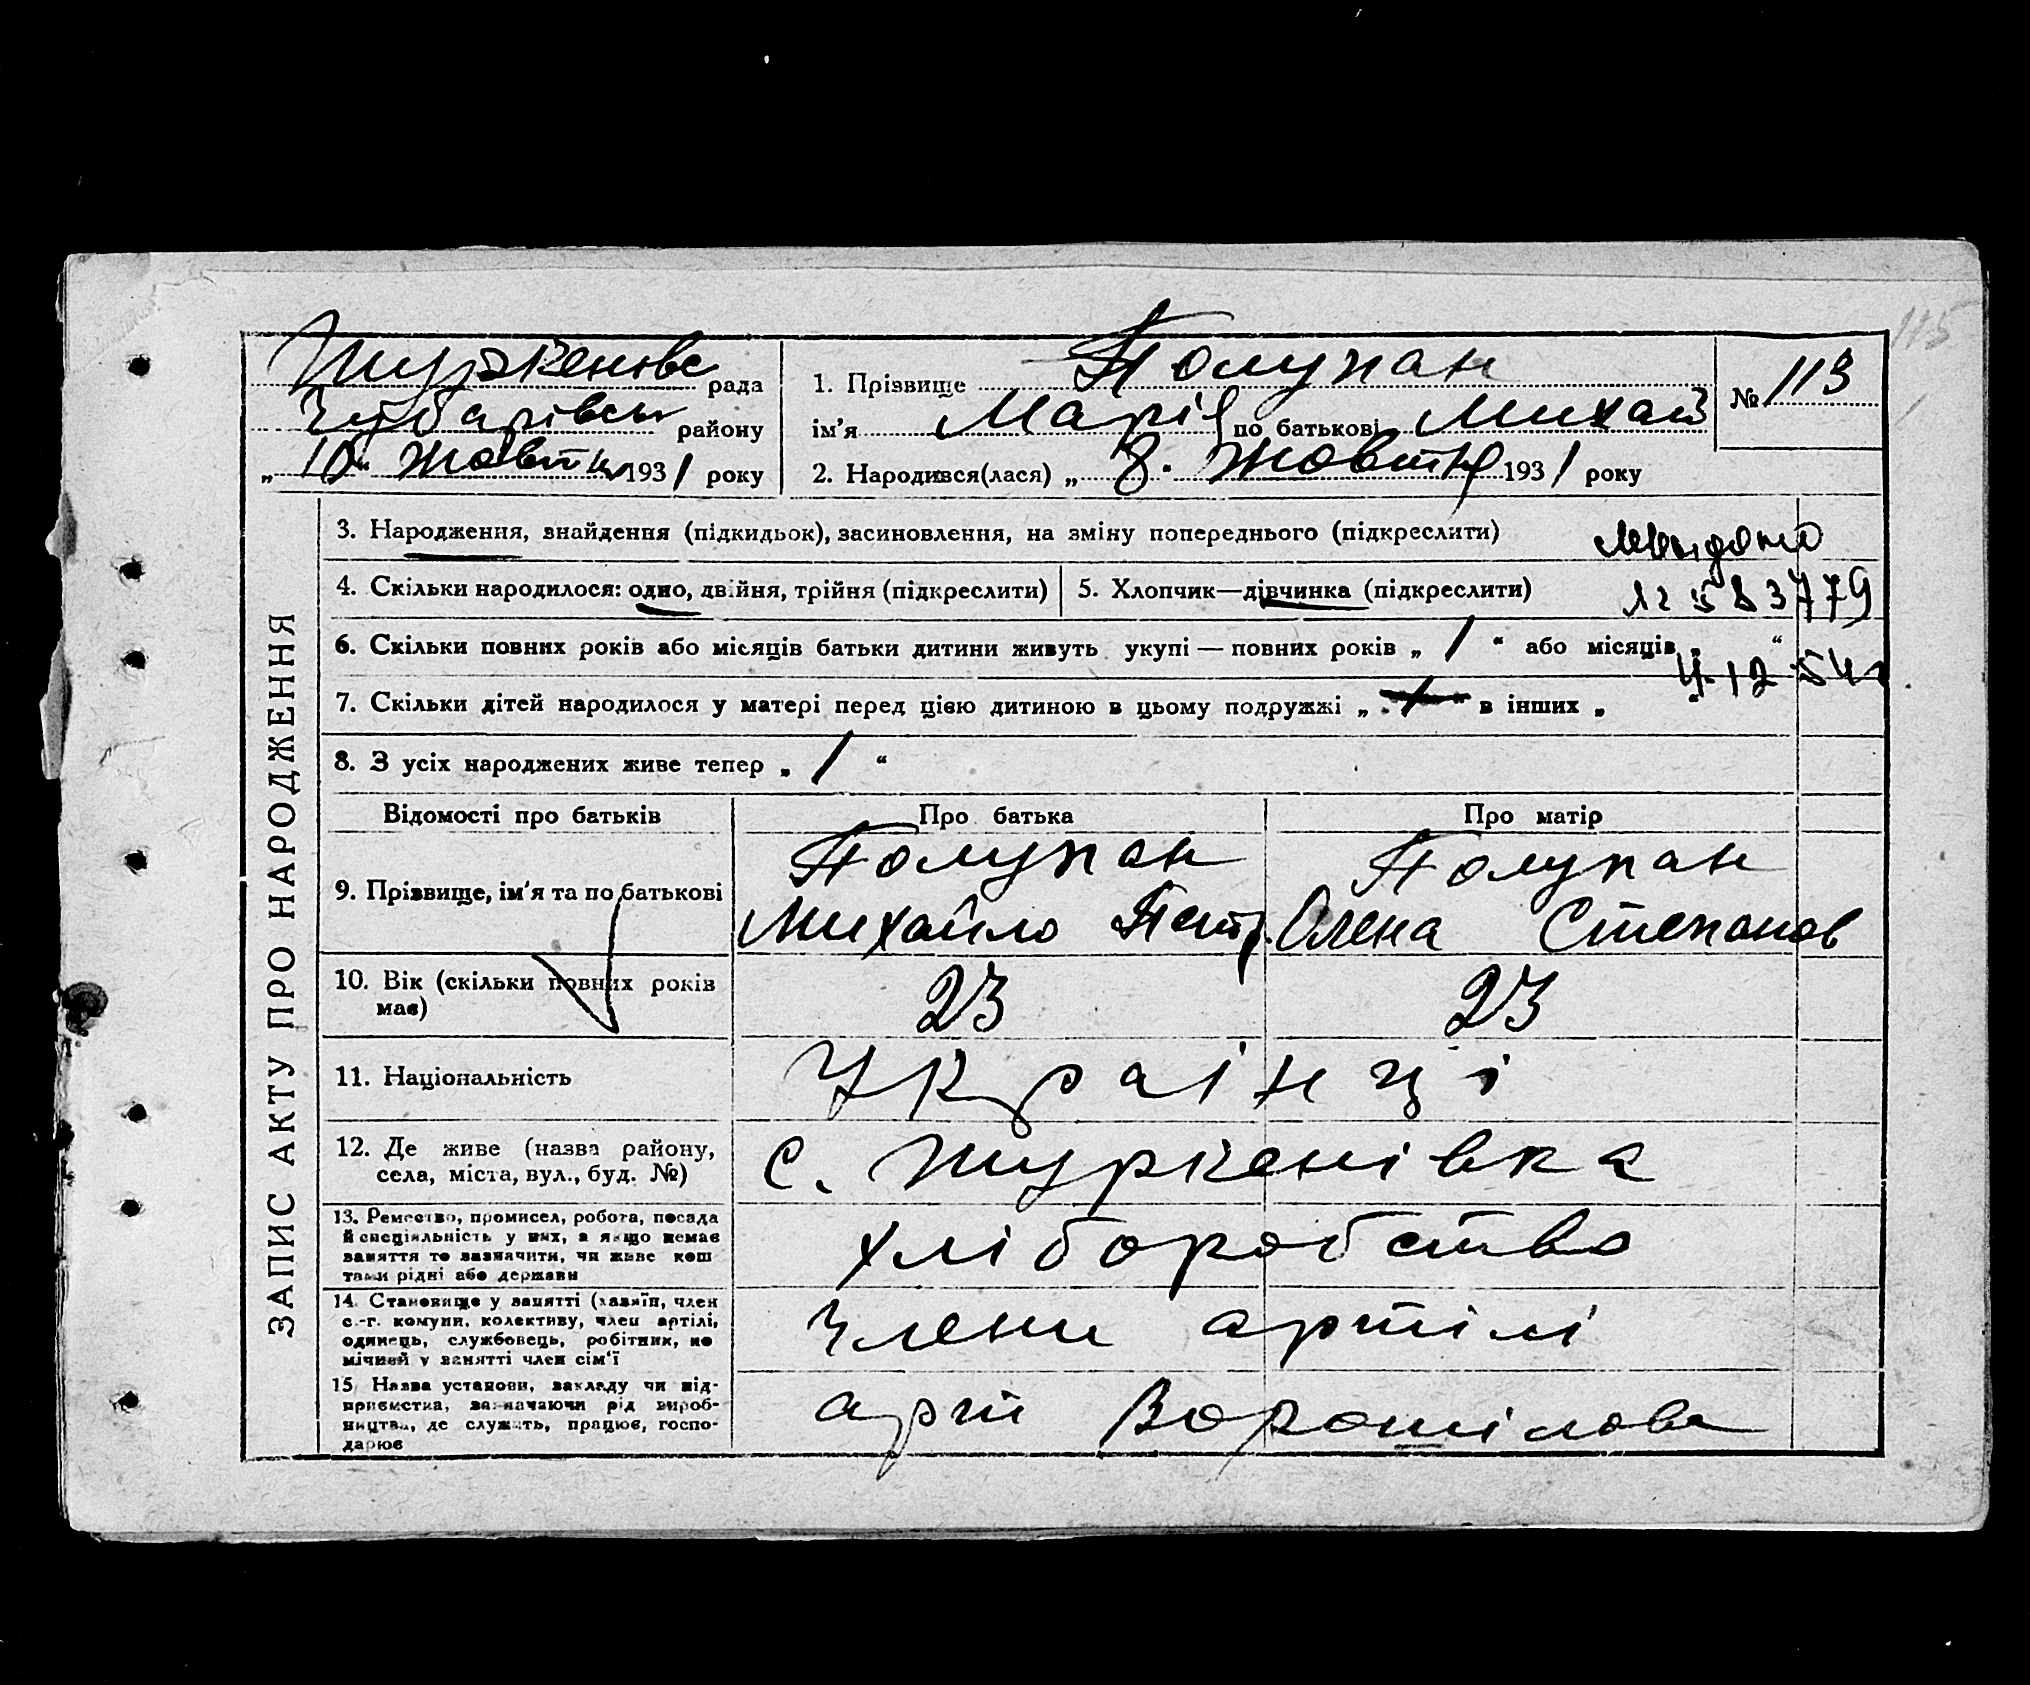 115
Туркенівс рада
Чубарівськ району
„10“ Жовтня 1931 року
1. Прізвище Полупан
ім'я Марія по батькові Михай
2. Народився(лася) „8. Жовтня 1931 року
№ 113
ЗАПИС АКТУ ПРО НАРОДЖЕННЯ
3. Народження, знайдення (підкидьок), засиновлення, на зміну попереднього (підкреслити)
4. Скільки народилося: одно, двійня, трійня (підкреслити)
5. Хлопчик—дівчинка (підкреслити)
583779
6. Скільки повних років або місяців батьки дитини живуть укупі — повних років „ 1 “ або місяців „ “
4.12.54г
7. Скільки дітей народилося у матері перед цією дитиною в цьому подружжі „ “ в інших „ “
8. З усіх народжених живе тепер „ 1 “
Відомості про батьків Про батька Про матір
9. Прізвище, ім'я та по батькові
Полупан Полупан
Михайло Петр. Олена Степанов
10. Вік (скільки повних років
має)
23 23
11. Національність Украінці
12. Де живе (назва району,
села, міста, вул., буд. №)
с. Туркенівка
13. Ремество, промисел, робота, посада
й спеціяльність у них, а якщо немає
заняття то зазначити, чи живе кош
тами рідні або держави
хліборобство
14. Становище у занятті (хазяїн, член
с.-г. комуни, колективу, член артілі,
одинець, службовець, робітник, по
мічний у занятті член сім'ї
Члени артілі
15. Назва установи, закладу чи під-
приємства, зазначаючи рід вироб-
ництва, де служить, працює, госпо-
дарює
арт Ворошілова